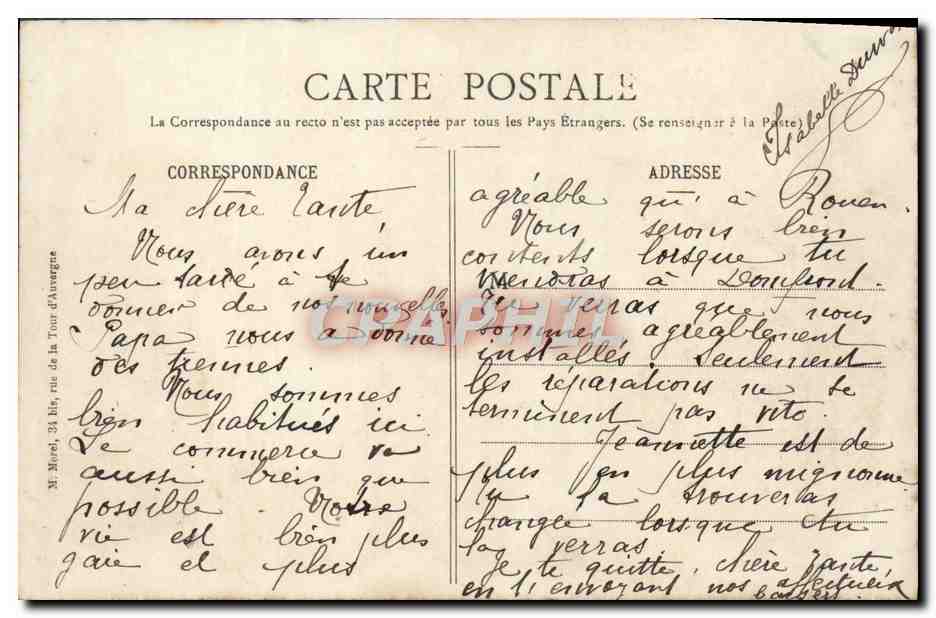 CARTE POSTALE
La Correspondance au recto n'est pas acceptée par tous les Pays Étrangers. (Se renseigner à la Poste)
Isabelle
CORRESPONDANCE
Ma chère Tante
Nous avons un
peu tardé à te
donner de nos nouvelles.
Papa nous a donné
des tiennes.
Nous sommes
bien habitués ici.
Le commerce va
aussi bien que
possible. Notre
vie est bien plus
gaie et plus
ADRESSE
agréable qu'à Rouen.
Nous serons bien
contents lorsque tu
viendras à Domfront.
Tu verras que nous
sommes agréablement
installés seulement
les réparations ne se
terminent pas vite.
Jeannette est de
plus en plus mignonne
tu la trouveras
changée lorsque tu
la verras.
Je te quitte, chère Tante,
en t'envoyant nos affectueux
baisers.
M. Morel, 34 bis, rue de la Tour d'Auvergne
CRAPHIL